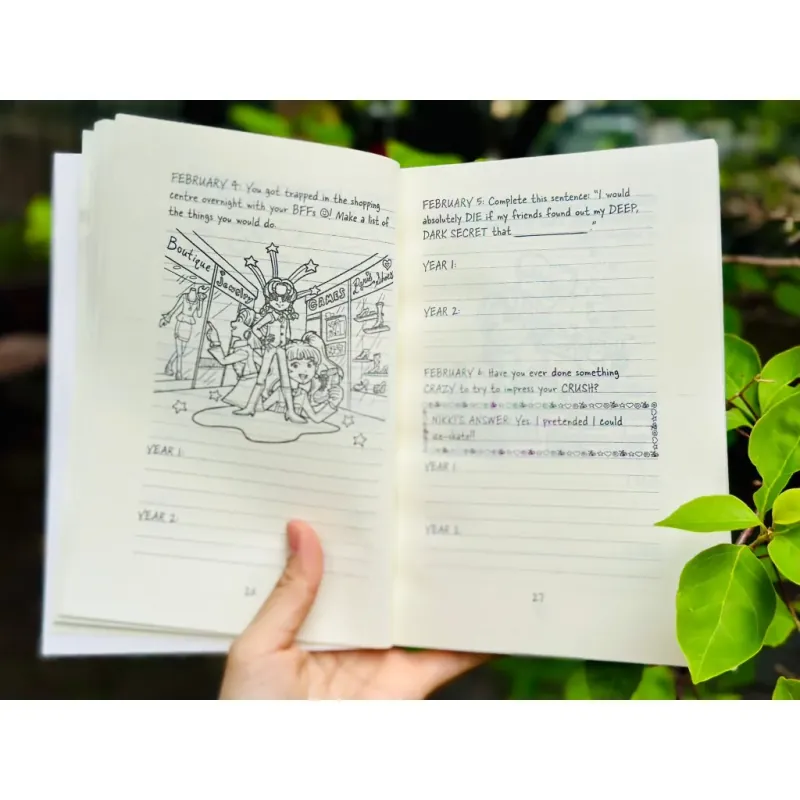 FEBRUARY 4: You got trapped in the shopping
centre overnight with your BFFs ☺! Make a list of
the things you would do.
Boutique
Jewelry
GAMES
Shoes
YEAR 1:
YEAR 2:
26
FEBRUARY 5: Complete this sentence: "I would
absolutely DIE if my friends found out my DEEP,
DARK SECRET that ____________."
YEAR 1:
YEAR 2:
FEBRUARY 6: Have you ever done something
CRAZY to try to impress your CRUSH?
NIKKI'S ANSWER: Yes. I pretended I could
ice-skate!!
YEAR 1:
YEAR 2:
27